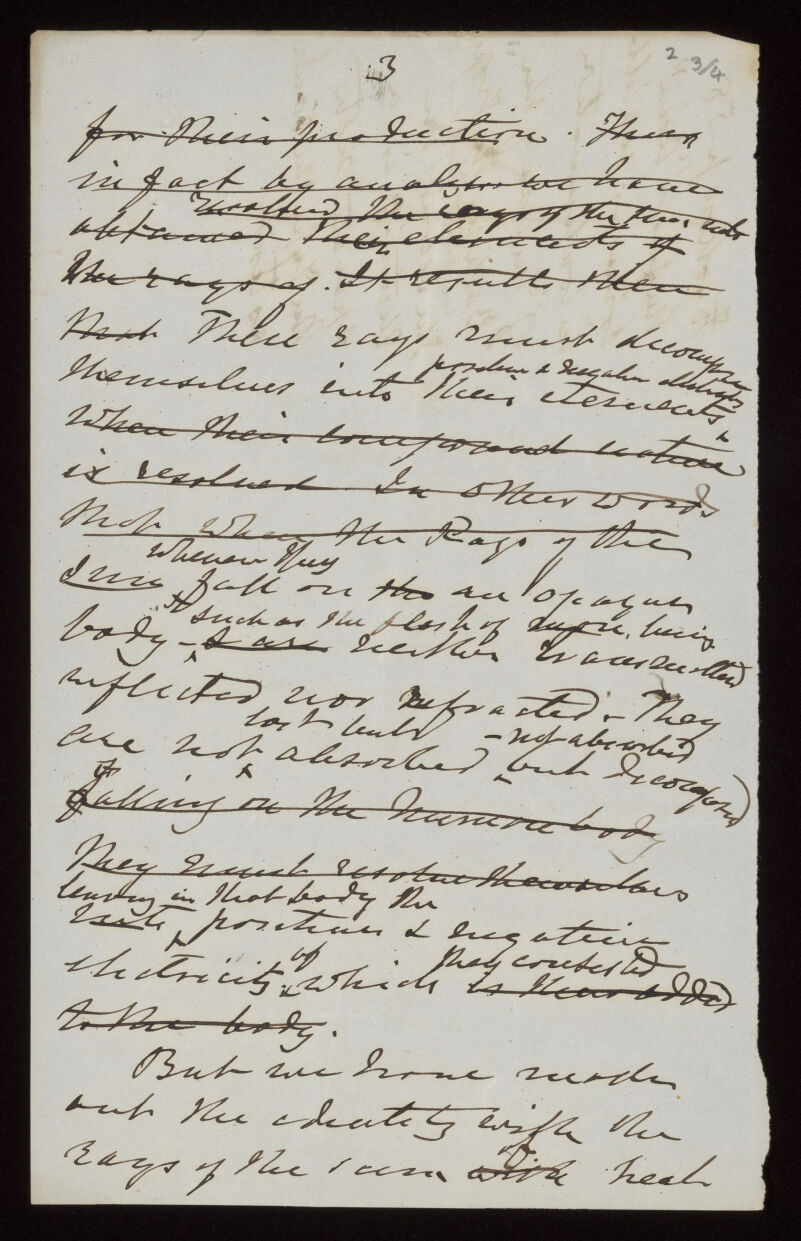 3
2 3/4
for their production. Thus
in fact by analysis we have
resolved the rays of the sun into
obtained their elements of
the rays of. It results then
that These rays must decompose
positive & negative electricity
themselves into their elements
when their compound nature
is resolved In other words
that when the Rays of the
whenever they
Sun fall on the an opaque
such as the flesh of man, being
body - & are neither transmitted
reflected nor refracted - They
lost but - not absorbed
are not absorbed but decomposed
falling on the human body
They must resolve themselves
leaving in that body the
into positive & negative
of they consisted
electricity, which is thus added
to the body.
But we have made
out the identity with the
of
rays of the sun with heat